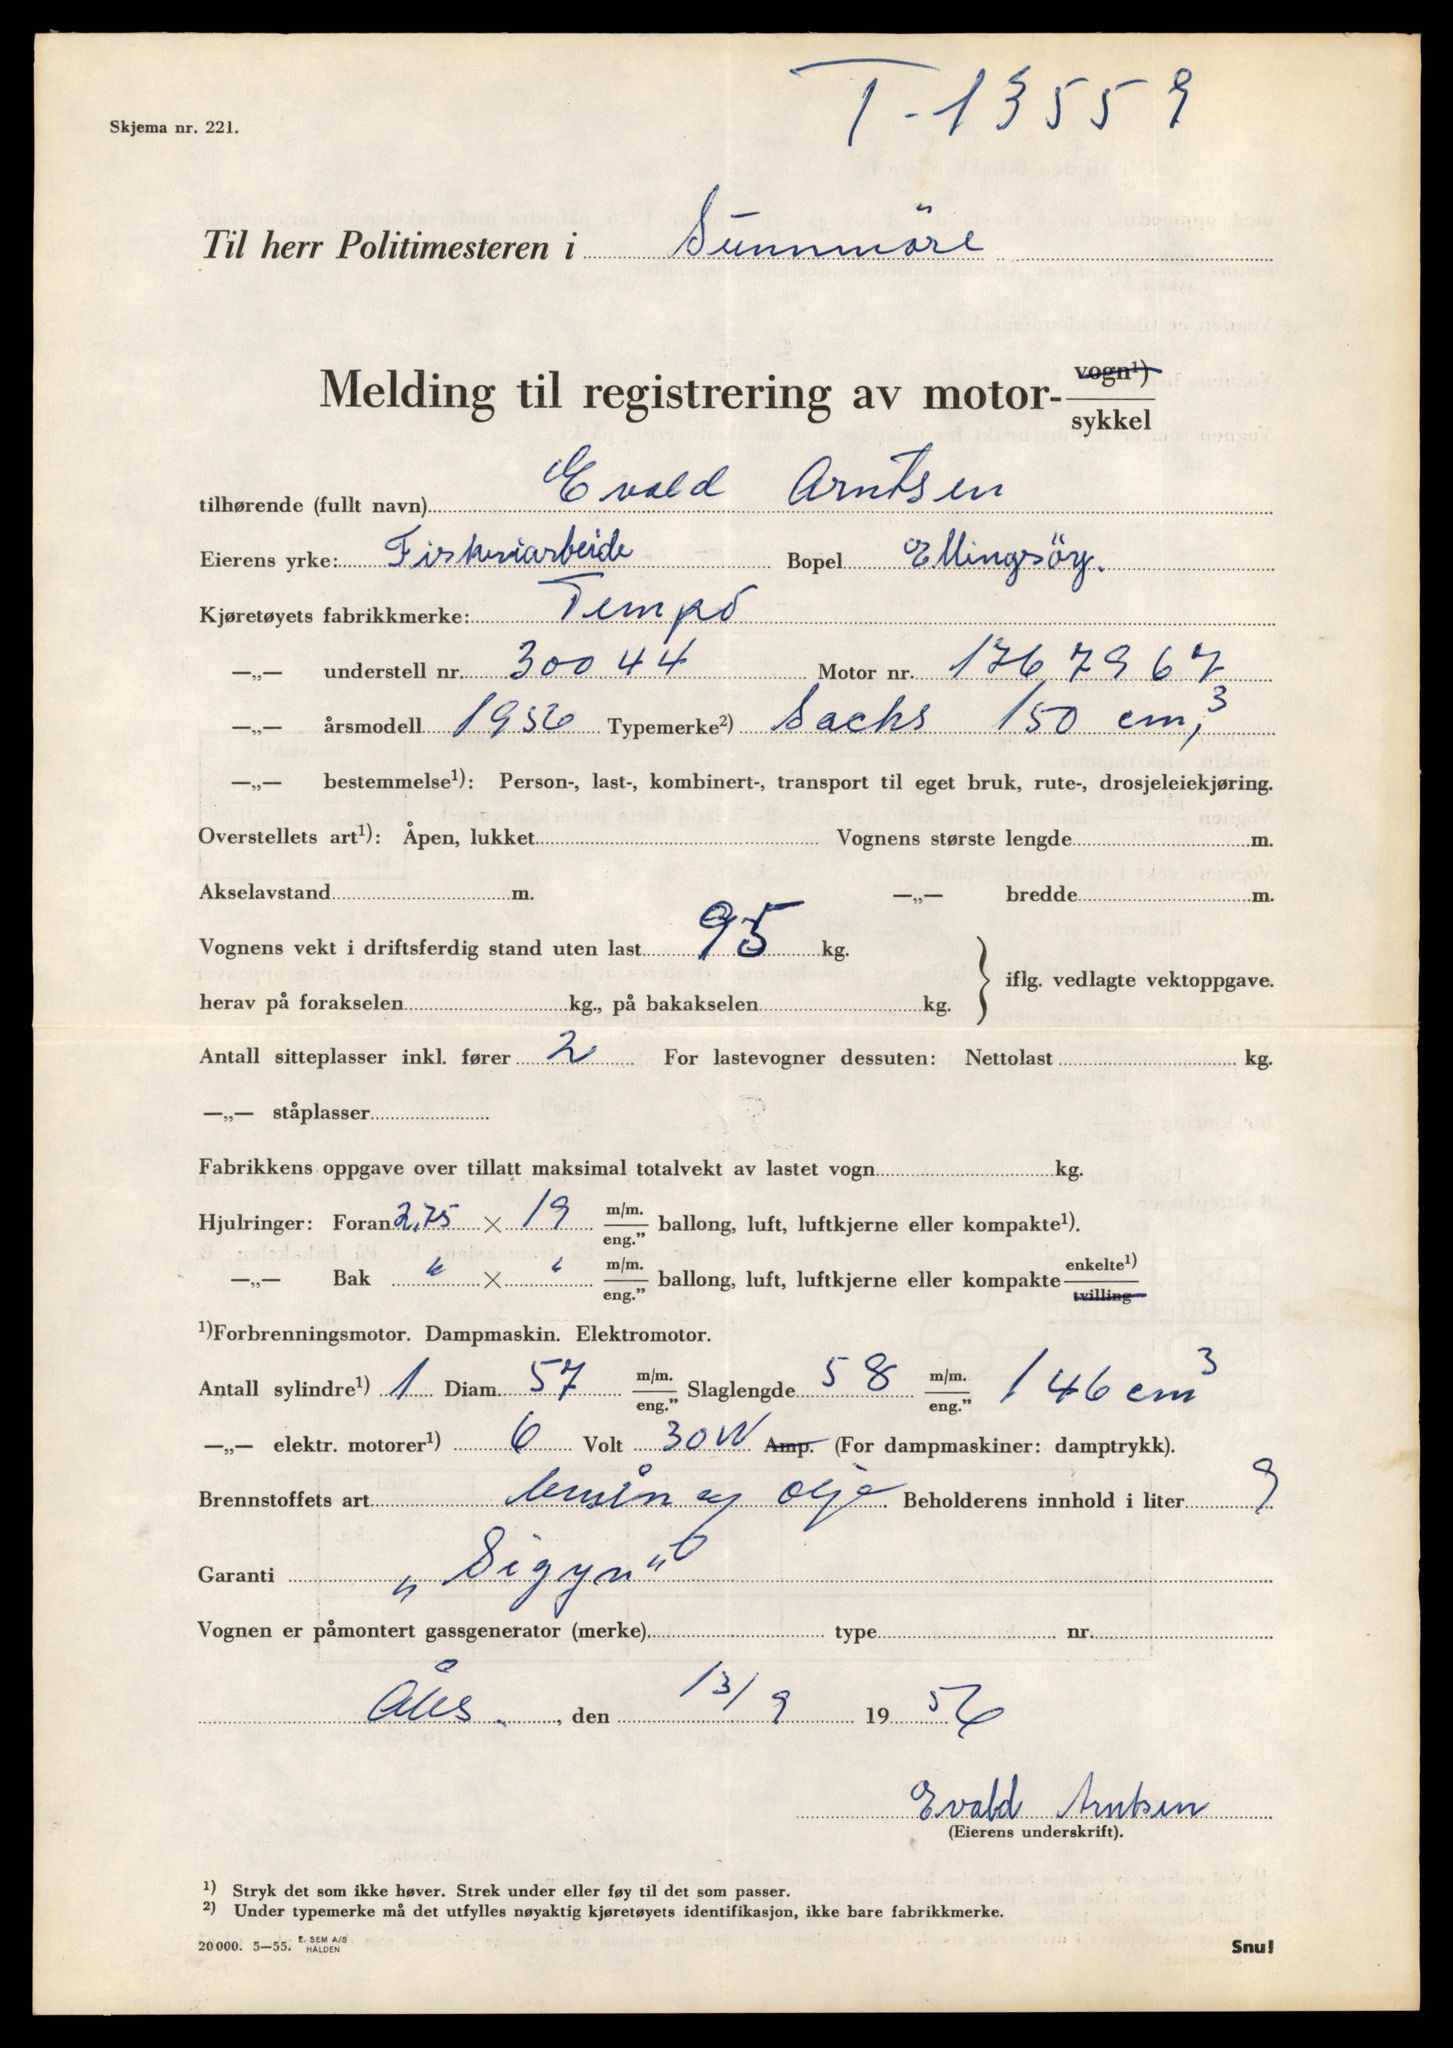 T-13559
Skjema nr. 221.
Til herr Politimesteren i Sunnmöre
Melding til registrering av motor- vogn¹) / sykkel
tilhørende (fullt navn) Evald Arntsen
Eierens yrke: Fiskeriarbeide Bopel Ellingsöy.
Kjøretøyets fabrikkmerke: Tempo
—„— understell nr. 30044 Motor nr. 1767967
—„— årsmodell 1956 Typemerke²) Sachs 150 cm³,
—„— bestemmelse¹): Person-, last-, kombinert-, transport til eget bruk, rute-, drosjeleiekjøring.
Overstellets art¹): Åpen, lukket Vognens største lengde m.
Akselavstand m. —„— bredde m.
Vognens vekt i driftsferdig stand uten last 95 kg.
herav på forakselen kg., på bakakselen kg. } iflg. vedlagte vektoppgave.
Antall sitteplasser inkl. fører 2 For lastevogner dessuten: Nettolast kg.
—„— ståplasser
Fabrikkens oppgave over tillatt maksimal totalvekt av lastet vogn kg.
Hjulringer: Foran 2,75 × 19 m/m. / eng.” ballong, luft, luftkjerne eller kompakte¹).
—„— Bak " × " m/m. / eng.” ballong, luft, luftkjerne eller kompakte enkelte¹) / tvilling
¹)Forbrenningsmotor. Dampmaskin. Elektromotor.
Antall sylindre¹) 1 Diam. 57 m/m. / eng.” Slaglengde 58 m/m. / eng.” 146 cm³
—„— elektr. motorer¹) 6 Volt 30W Amp. (For dampmaskiner: damptrykk).
Brennstoffets art bensin og olje Beholderens innhold i liter 9
Garanti „Sigyn“
Vognen er påmontert gassgenerator (merke) type nr.
Åles., den 13/9 1956
Evald Arntsen
(Eierens underskrift).
¹) Stryk det som ikke høver. Strek under eller føy til det som passer.
²) Under typemerke må det utfylles nøyaktig kjøretøyets identifikasjon, ikke bare fabrikkmerke.
20 000. 5—55. E. SEM A/S HALDEN
Snu!